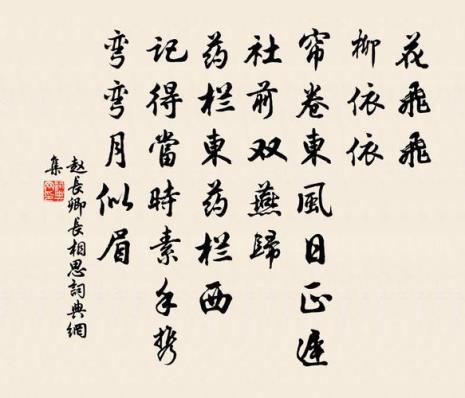 花飛飛
柳依依
帘卷東風日正遲
社前双燕歸
药栏東药栏西
記得當時素手携
弯弯月似眉
赵長卿長相思詞典網
集